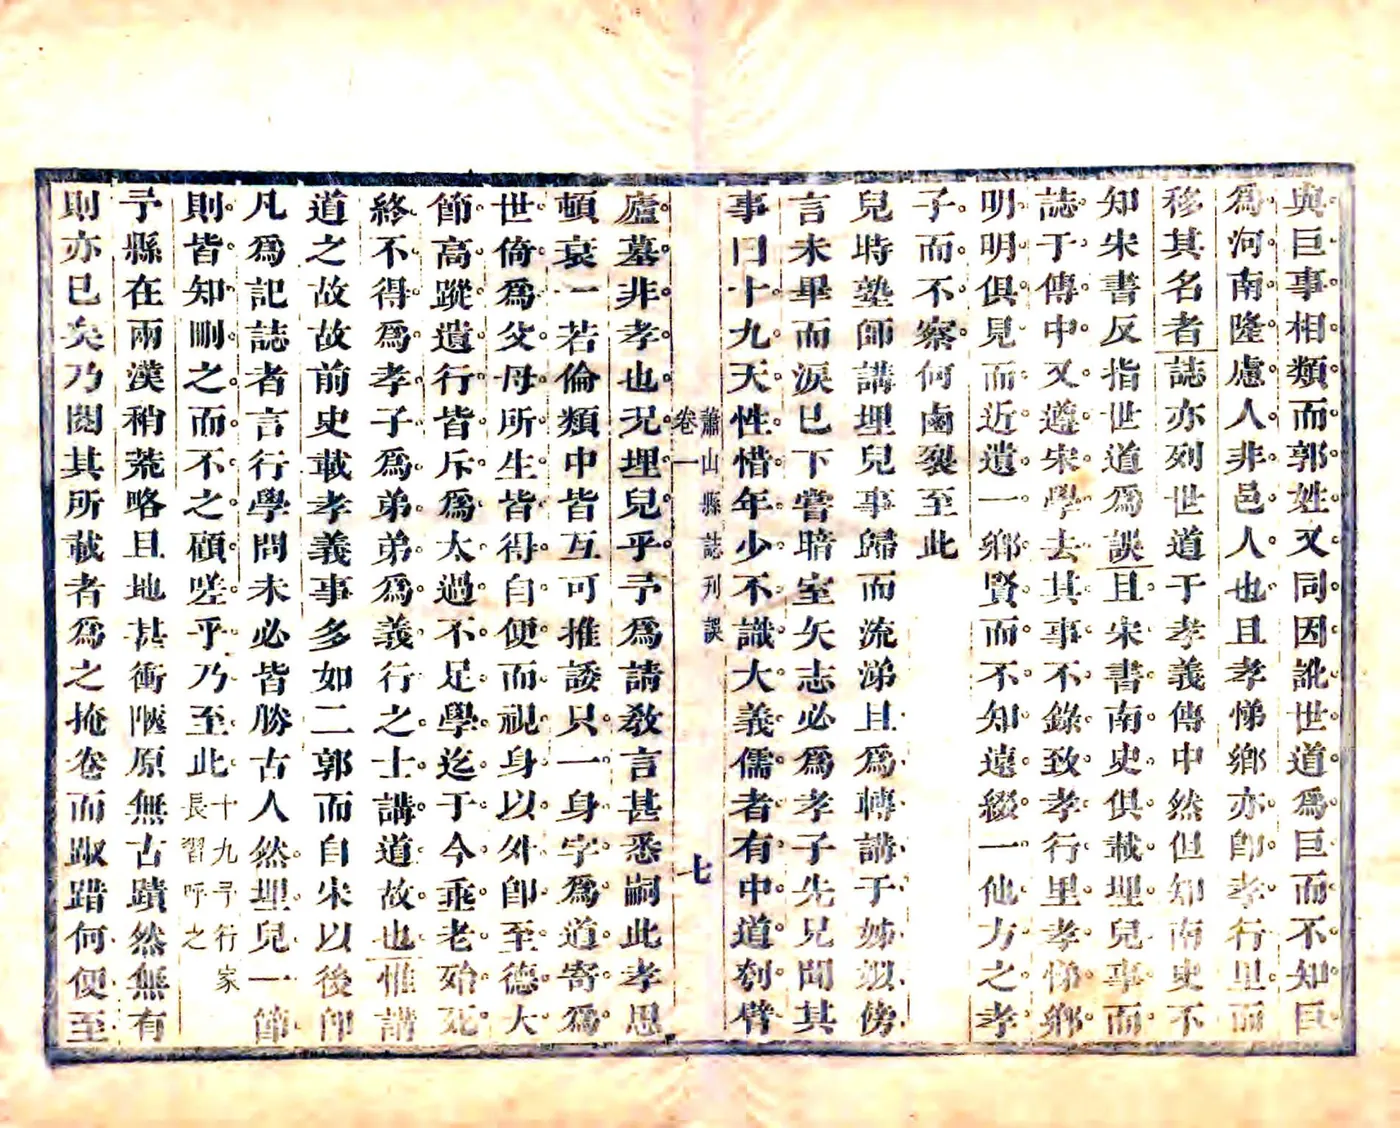 與巨事相類而郭姓又同因訛世道爲巨而不知巨
爲河南隆慮人非邑人也且孝悌鄉亦卽孝行里而
移其名者誌亦列世道于孝義傳中然但知南史不
知宋書反指世道爲誤且宋書南史俱載埋兒事而
誌于傳中又遵宋學去其事不錄致孝行里孝悌鄉
明明俱見而近遺一鄉賢而不知遠綴一他方之孝
子而不察何鹵裂至此
兒時塾師講埋兒事歸而流涕且爲轉講于姊娰傍
言未畢而淚巳下嘗暗室矢志必爲孝子先兄聞其
事曰十九天性惜年少不識大義儒者有中道刳臂
蕭山縣誌刊誤
卷一
七
廬墓非孝也况埋兒乎予爲請敎言甚悉嗣此孝思
頓衰一若倫類中皆互可推諉只一身字爲道寄爲
世倚爲父母所生皆得自便而視身以外卽至德大
節高蹤遺行皆斥爲太過不足學迄于今垂老殆死
終不得爲孝子爲弟弟爲義行之士講道故也惟講
道之故故前史載孝義事多如二郭而自宋以後卽
凡爲記誌者言行學問未必皆勝古人然埋兒一節
則皆知刪之而不之顧嗟乎乃至此十九予行家
長習呼之
予縣在兩漢稍荒略且地甚衝陿原無古蹟然無有
則亦巳矣乃閱其所載者爲之掩卷而踧踖何便至